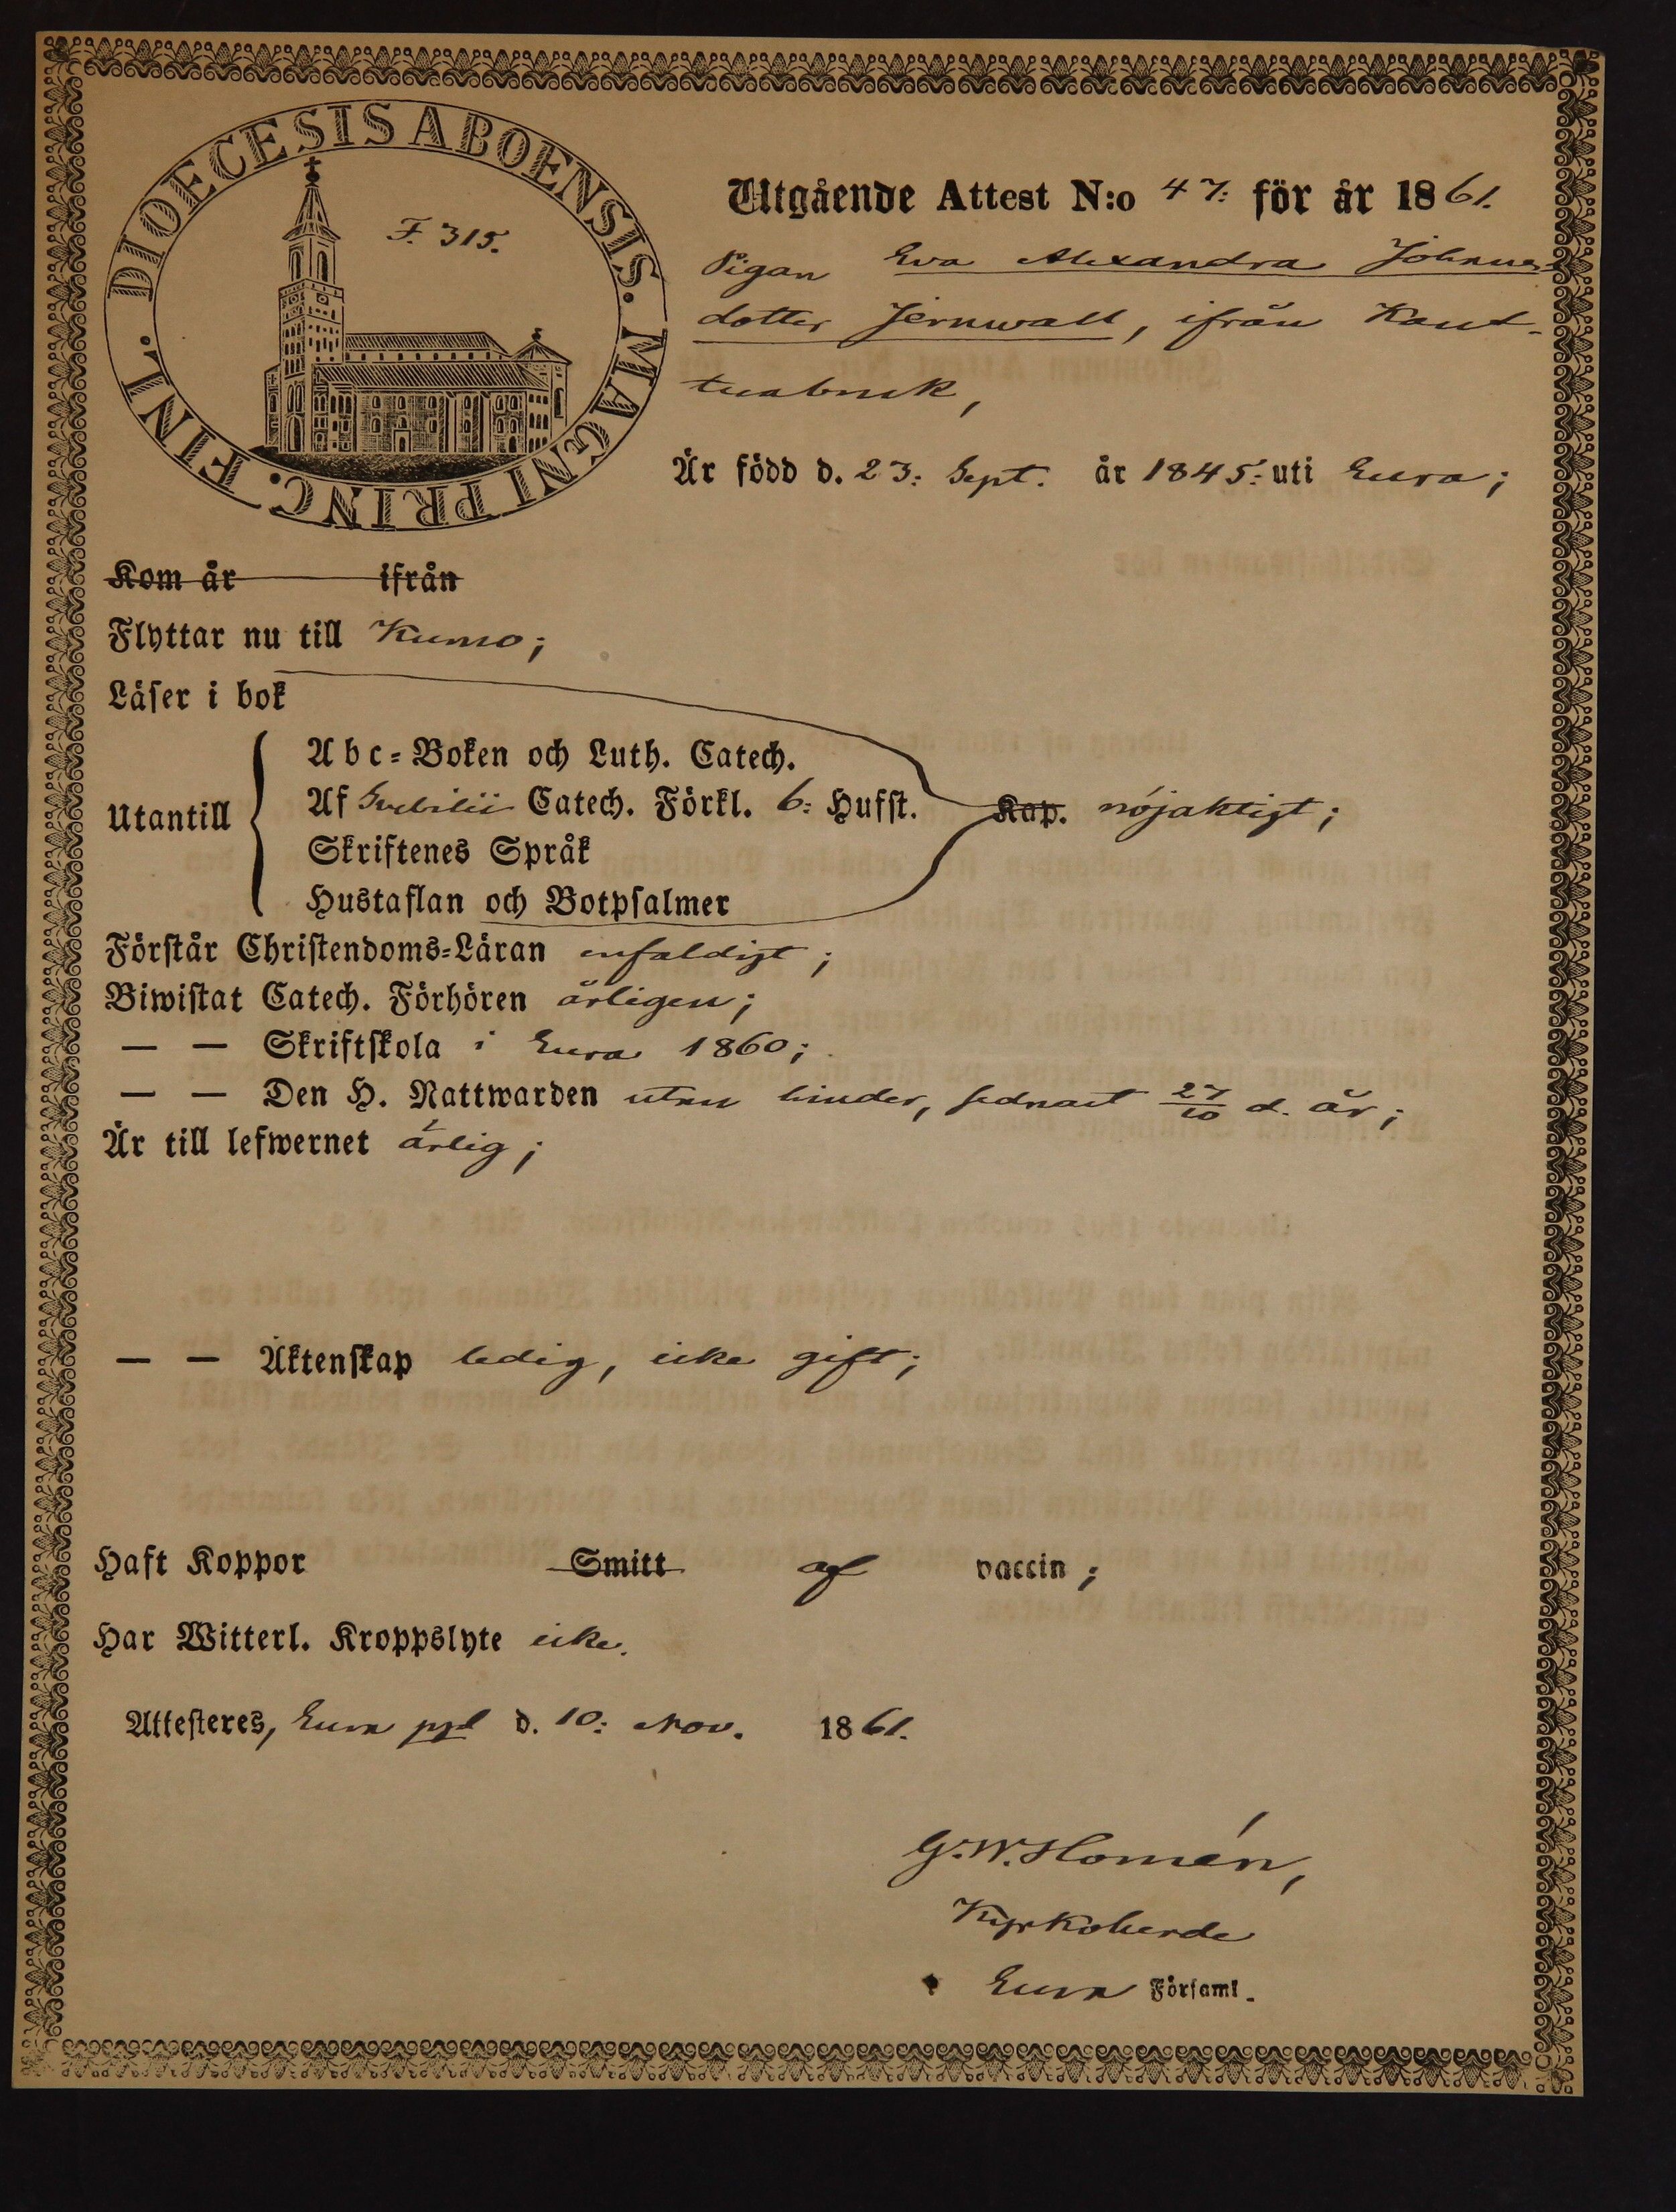 DIOECESIS ABOENSIS. MAGNI PRINC. FINL.
F. 315.
Utgående Attest N:o 47: för år 1861.
Pigan Eva Alexandra Johans
dotter Jernwall, ifrån Kaut-
tuabruk,
Är född d. 23: Sept. år 1845: uti Eura;
Kom år ifrån
Flyttar nu till Kumo;
Läser i bok
Abc-Boken och Luth. Catech.
Utantill
Af Svebilii Catech. Förkl. 6: Hufst. Kap. nöjaktigt;
Skriftenes Språk
Hustaflan och Botpsalmer
Förstår Christendoms-Läran enfaldigt;
Biwistat Catech. Förhören årligen;
— — Skriftskola i Eura 1860;
— — Den H. Nattwarden utan hinder, sednast 27/10 d. år;
Är till lefwernet ärlig;
— — Äktenskap ledig, icke gift;
Haft Koppor Smitt af vaccin;
Har Witterl. Kroppslyte icke.
Attesteres, Eura pgd d. 10: Nov. 1861.
G. W. Homén,
Kyrkoherde
Eura Församl.